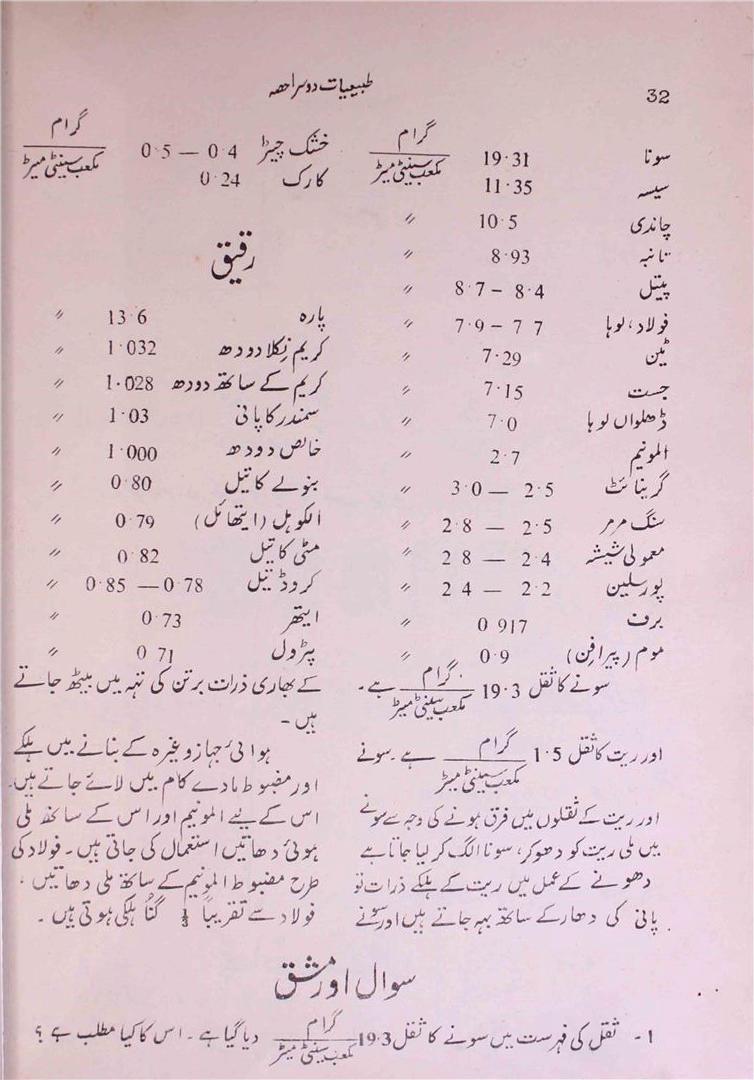 32
طبیعیات دوسرا حصہ
سونا 19·31 گرام / مکعب سینٹی میٹر
سیسہ 11·35
چاندی 10·5 〃
تانبہ 8·93 〃
پیتل 8·4 – 8·7 〃
فولاد، لوہا 7 7 – 7·9 〃
ٹین 7·29 〃
جست 7·15 〃
ڈھلواں لوہا 7·0 〃
المونیم 2·7 〃
گرینائٹ 2·5 — 3·0 〃
سنگ مرمر 2·5 — 2·8 〃
معمولی شیشہ 2·4 — 2 8 〃
پورسلین 2·2 — 2 4 〃
برف 0 917 〃
موم (پیرافن) 0·9 〃
سونے کا ثقل 19·3 گرام / مکعب سینٹی میٹر ہے۔
اور ریت کا ثقل 1·5 گرام / مکعب سینٹی میٹر ہے۔ سونے
اور ریت کے ثقلوں میں فرق ہونے کی وجہ سے سونے
میں ملی ریت کو دھوکر، سونا الگ کر لیا جاتا ہے
دھونے کے عمل میں ریت کے ہلکے ذرات تو
پانی کی دھار کے ساتھ بہہ جاتے ہیں اور سونے
خشک چیڑ 0·4 — 0·5 گرام / مکعب سینٹی میٹر
کارک 0·24
رقیق
پارہ 13·6 〃
کریم نکلا دودھ 1·032 〃
کریم کے ساتھ دودھ 1·028 〃
سمندر کا پانی 1·03 〃
خالص دودھ 1·000 〃
بنولے کا تیل 0·80 〃
الکوہل (ایتھائل) 0·79 〃
مٹی کا تیل 0·82 〃
کروڈ تیل 0·78 — 0·85 〃
ایتھر 0·73 〃
پٹرول 0 71 〃
کے بھاری ذرات برتن کی تہہ میں بیٹھ جاتے
ہیں۔
ہوائی جہاز وغیرہ کے بنانے میں ہلکے
اور مضبوط مادے کام میں لائے جاتے ہیں۔
اس کے لیے المونیم اور اس کے ساتھ ملی
ہوئی دھاتیں استعمال کی جاتی ہیں۔ فولاد کی
طرح مضبوط المونیم کے ساتھ ملی دھاتیں ،
فولاد سے تقریباً ⅓ گنا ہلکی ہوتی ہیں۔
سوال اور مشق
1۔ ثقل کی فہرست میں سونے کا ثقل 19·3 گرام / مکعب سینٹی میٹر دیا گیا ہے۔ اس کا کیا مطلب ہے ؟